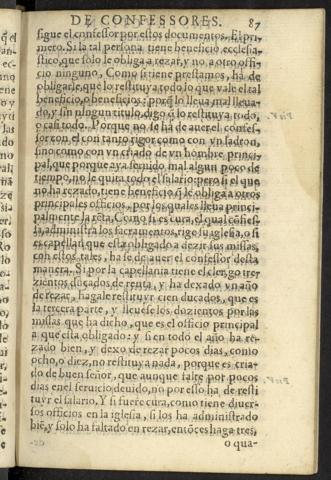 DE CONFESSORES. 87
sigue el confessor por estos documentos. El pri-
mero. Si la tal persona tiene beneficio ecclesia-
stico, que solo le obliga a rezar, y no a otro offi-
cio ninguno, Como si tiene prestamos, ha de
obligarle, que lo restituya todo lo que vale el tal
beneficio, o beneficios: porq̃ lo lleua mal lleua-
do, y sin ningun titulo, digo q̃ lo restituya todo,
o casi todo. Porque no se ha de auer el confes-
sor con el con tanto rigor como con vn ladron,
sino como con vn criado de vn hombre princi-
pal, que porque aya seruido mal algun poco de
tiempo, no le quita todo el salario: pero si el que
no ha rezado, tiene beneficio q̃ le obliga a otros
principales officios, por los quales lleua princi-
palmente la rẽta, Como si es cura, el qual cõfies-
sa, administra los sacramentos, rige su iglesia, o si
es capellan que esta obligado a dezir sus missas,
con estos tales, ha se de auer el confessor desta
manera. Si por la capellania tiene el clerigo tre-
zientos ducados de renta, y ha dexado vn año
de rezar, hagale restituyr cien ducados, que es
la tercera parte, y lleuese los dozientos por las
missas que ha dicho, que es el officio principal
a que esta obligado: y si en todo el año ha re-
zado bien, y dexo de rezar pocos dias, como
ocho, o diez, no restituya nada, porque es cria-
do de buen señor, que aunque falte por pocos
dias en el seruicio deuido, no por esso ha de resti
tuyr el salario. Y si fuere cura, como tiene diuer-
sos officios en la iglesia, si los ha administrado
biẽ, y solo ha faltado en rezar, entõces haga tres,
o qua-